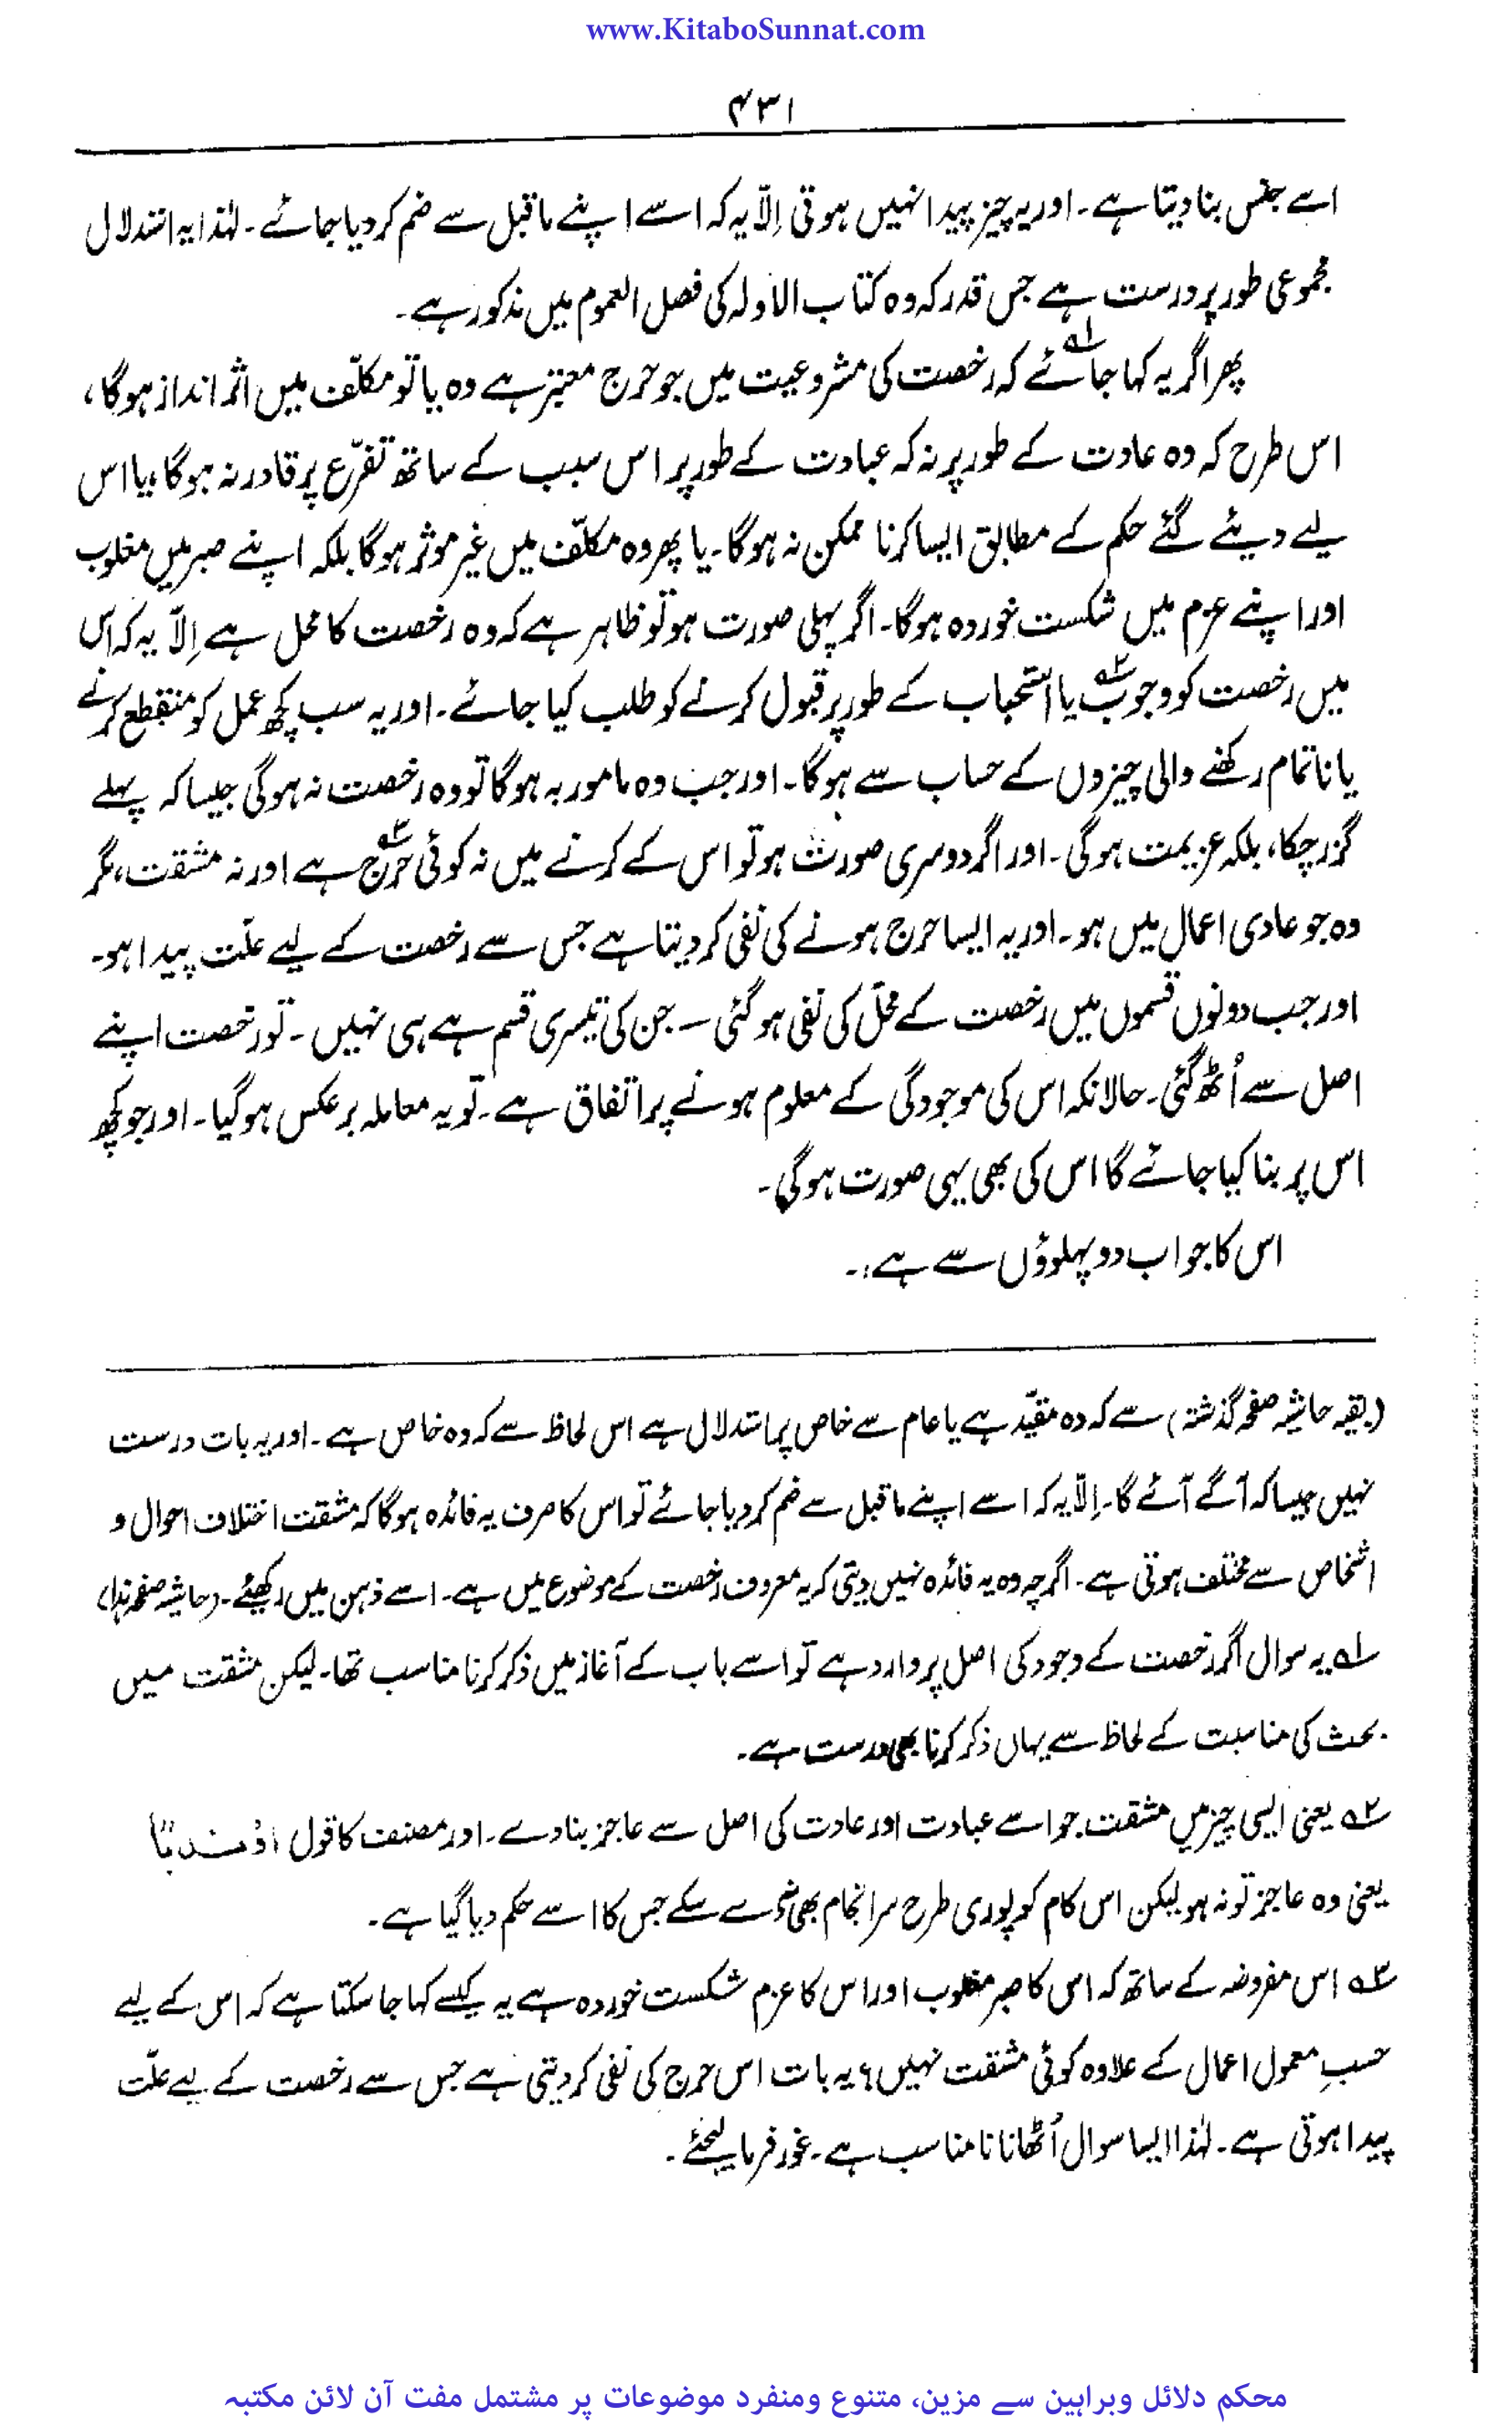 www.KitaboSunnat.com
۴۳۱
اسے جنس بنا دیتا ہے۔ اور یہ چیز پیدا نہیں ہوتی اِلّا یہ کہ اسے اپنے ماقبل سے ضم کر دیا جائے۔ لہٰذا یہ استدلال
مجموعی طور پر درست ہے جس قدر کہ وہ کتاب الادلہ کی فصل العموم میں مذکور ہے۔
پھر اگر یہ کہا جائے ۱ کہ رخصت کی مشروعیت میں جو حرج معتبر ہے وہ یا تو مکلّف میں اثر انداز ہوگا،
اس طرح کہ وہ عادت کے طور پر نہ کہ عبادت کے طور پر اس سبب کے ساتھ تفرّع پر قادر نہ ہوگا، یا اس
لیے دیئے گئے حکم کے مطابق ایسا کرنا ممکن نہ ہوگا۔ یا پھر وہ مکلّف میں غیر موثر ہوگا بلکہ اپنے صبر میں مغلوب
اور اپنے عزم میں شکست خوردہ ہوگا۔ اگر پہلی صورت ہو تو ظاہر ہے کہ وہ رخصت کا محل ہے اِلّا یہ کہ اس
میں رخصت کو وجوب ۲ یا استحباب کے طور پر قبول کرنے کو طلب کیا جائے۔ اور یہ سب کچھ عمل کو منقطع کرنے
یا ناتمام رکھنے والی چیزوں کے حساب سے ہوگا۔ اور جب وہ مامور بہ ہوگا تو وہ رخصت نہ ہوگی جیسا کہ پہلے
گزر چکا، بلکہ عزیمت ہوگی۔ اور اگر دوسری صورت ہو تو اس کے کرنے میں نہ کوئی حرج ۳ ہے اور نہ مشقت، مگر
وہ جو عادی اعمال میں ہو۔ اور یہ ایسا حرج ہونے کی نفی کر دیتا ہے جس سے رخصت کے لیے علّت پیدا ہو۔
اور جب دونوں قسموں میں رخصت کے محلّ کی نفی ہو گئی – جن کی تیسری قسم ہے ہی نہیں۔ تو رخصت اپنے
اصل سے اُٹھ گئی۔ حالانکہ اس کی موجودگی کے معلوم ہونے پر اتفاق ہے۔ تو یہ معاملہ برعکس ہو گیا۔ اور جو کچھ
اس پر بنا کیا جائے گا اس کی بھی یہی صورت ہوگی۔
اس کا جواب دو پہلوؤں سے ہے:۔
(بقیہ حاشیہ صفحہ گذشتہ) سے کہ وہ مقیّد ہے یا عام سے خاص پر استدلال ہے اس لحاظ سے کہ وہ خاص ہے۔ اور یہ بات درست
نہیں جیسا کہ آگے آئے گا۔ اِلّا یہ کہ اسے اپنے ماقبل سے ضم کر دیا جائے تو اس کا صرف یہ فائدہ ہوگا کہ مشقت اختلاف احوال و
اشخاص سے مختلف ہوتی ہے۔ اگرچہ وہ یہ فائدہ نہیں دیتی کہ یہ معروف رخصت کے موضوع میں ہے۔ اسے ذہن میں رکھیئے۔ (حاشیہ صفحہ ہذا)
۱ یہ سوال اگر رخصت کے وجود کی اصل پر وارد ہے تو اسے باب کے آغاز میں ذکر کرنا مناسب تھا۔ لیکن مشقت میں
بحث کی مناسبت کے لحاظ سے یہاں ذکر کرنا بھی درست ہے۔
۲ یعنی ایسی چیز میں مشقت جو اسے عبادت اور عادت کی اصل سے عاجز بنا دے۔ اور مصنف کا قول اَوْ مَنْدُوبًا
یعنی وہ عاجز تو نہ ہو لیکن اس کام کو پوری طرح سرانجام بھی نہ دے سکے جس کا اسے حکم دیا گیا ہے۔
۳ اس مفروضہ کے ساتھ کہ اس کا صبر مغلوب اور اس کا عزم شکست خوردہ ہے یہ کیسے کہا جا سکتا ہے کہ اس کے لیے
حسبِ معمول اعمال کے علاوہ کوئی مشقت نہیں؟ یہ بات اس حرج کی نفی کر دیتی ہے جس سے رخصت کے لیے علّت
پیدا ہوتی ہے۔ لہٰذا ایسا سوال اُٹھانا نامناسب ہے۔ غور فرما لیجئے۔
محکم دلائل وبراہین سے مزین، متنوع ومنفرد موضوعات پر مشتمل مفت آن لائن مکتبہ